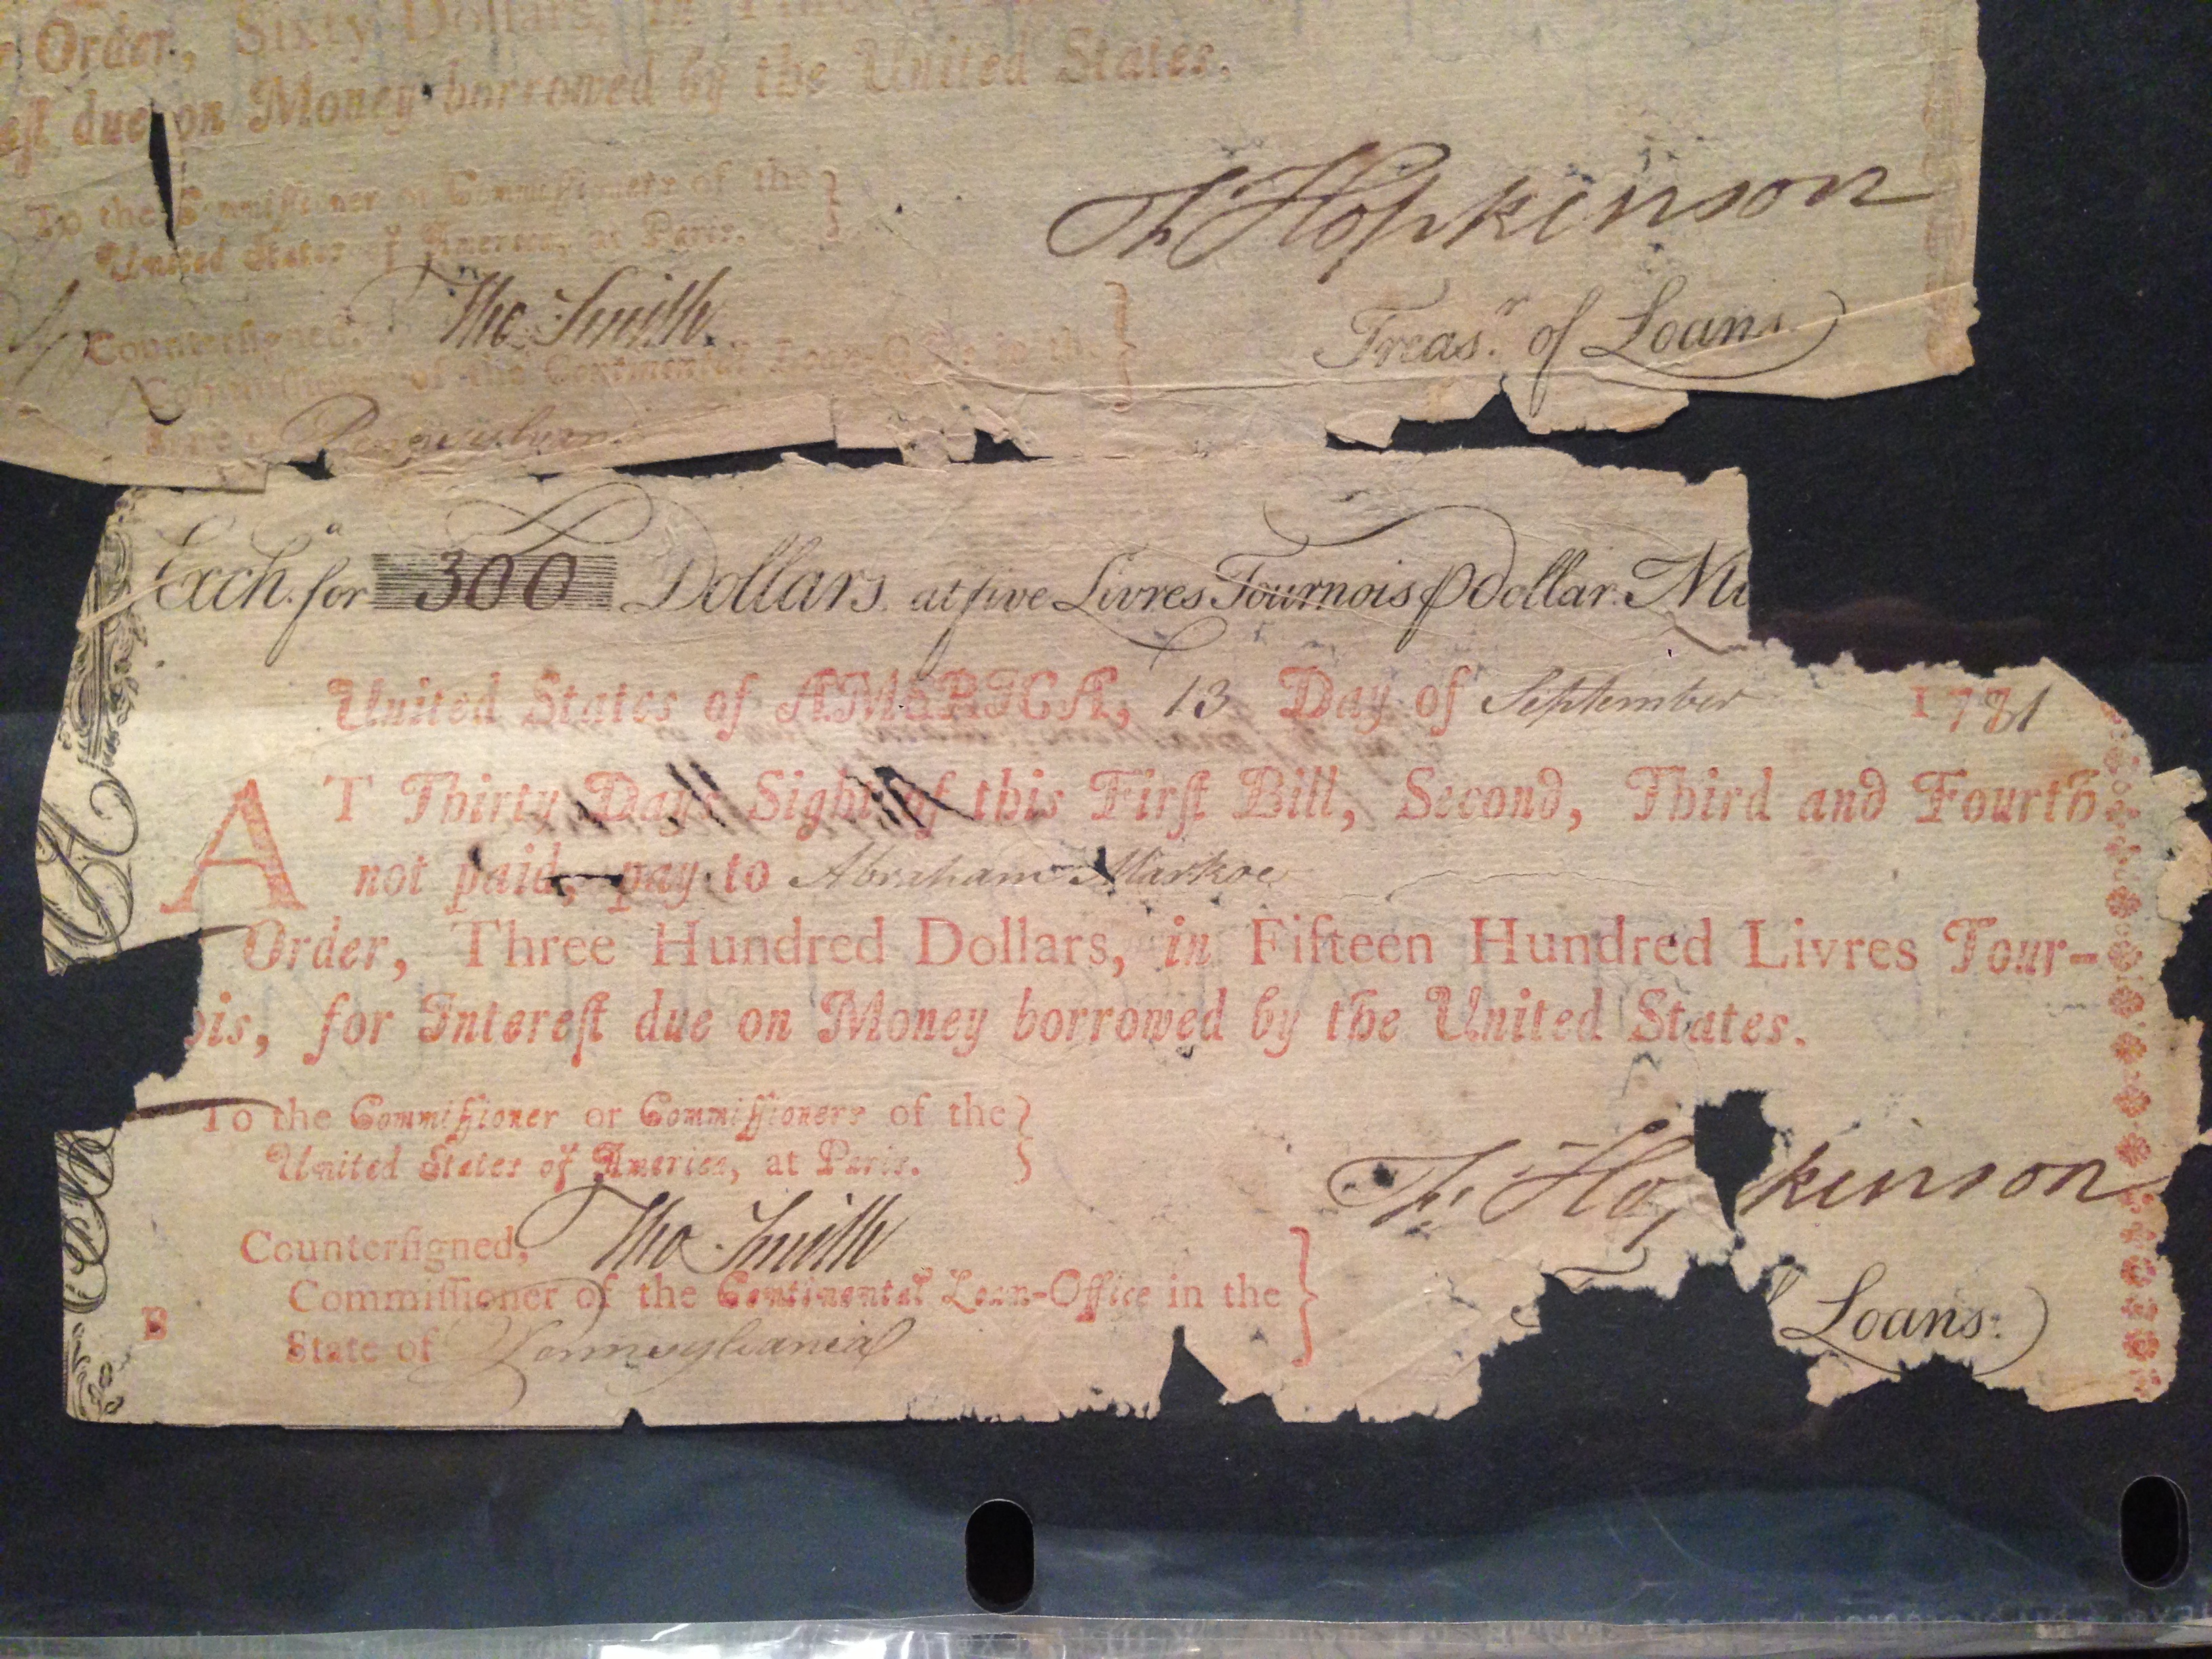 Order, Sixty Dollars, in
eſt due on Money borrowed by the United States.
To the Commiſſioner or Commiſſioners of the
United States of America, at Paris.
Th Hopkinson
Countersigned, Tho Smith
Treas.r of Loans
Commiſſioner of the Continental Loan-Office in the
State of Pennsylvania
Exch.a for 300 Dollars at five Livres Tournois ⅌ Dollar. Nu
United States of AMERICA, 13 Day of September 1781
AT Thirty Days Sight of this Firſt Bill, Second, Third and Fourth
not paid, pay to Abraham Markoe
Order, Three Hundred Dollars, in Fifteen Hundred Livres Tour-
ois, for Intereſt due on Money borrowed by the United States.
To the Commiſſioner or Commiſſioners of the
United States of America, at Paris.
Th Hopkinson
Counterſigned, Tho Smith
Commiſſioner of the Continental Loan-Office in the
Loans.
B State of Pennsylvania